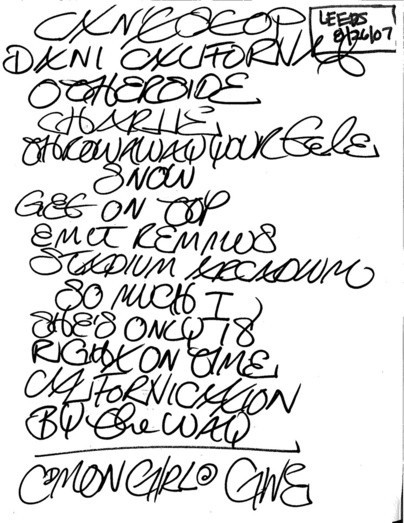 CAN'T STOP
LEEDS
8/26/07
DANI CALIFORNIA
OTHERSIDE
CHARLIE
THROWAWAY YOUR TELE
SNOW
GET ON TOP
EMIT REMMUS
STADIUM ARCADIUM
SO MUCH I
SHE'S ONLY 18
RIGHT ON TIME
CALIFORNICATION
BY the WAY
C'MON GIRL GIVE